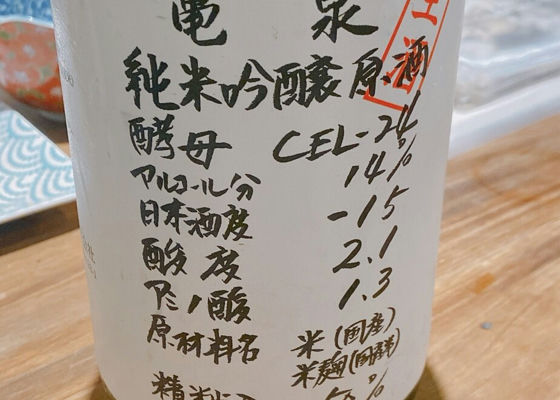 亀泉
純米吟醸原酒
生酒
酵母 CEL-24
アルコール分 14%
日本酒度 -15
酸度 2.1
アミノ酸 1.3
原材料名 米(国産)
米麹(国産米)
精米 50%